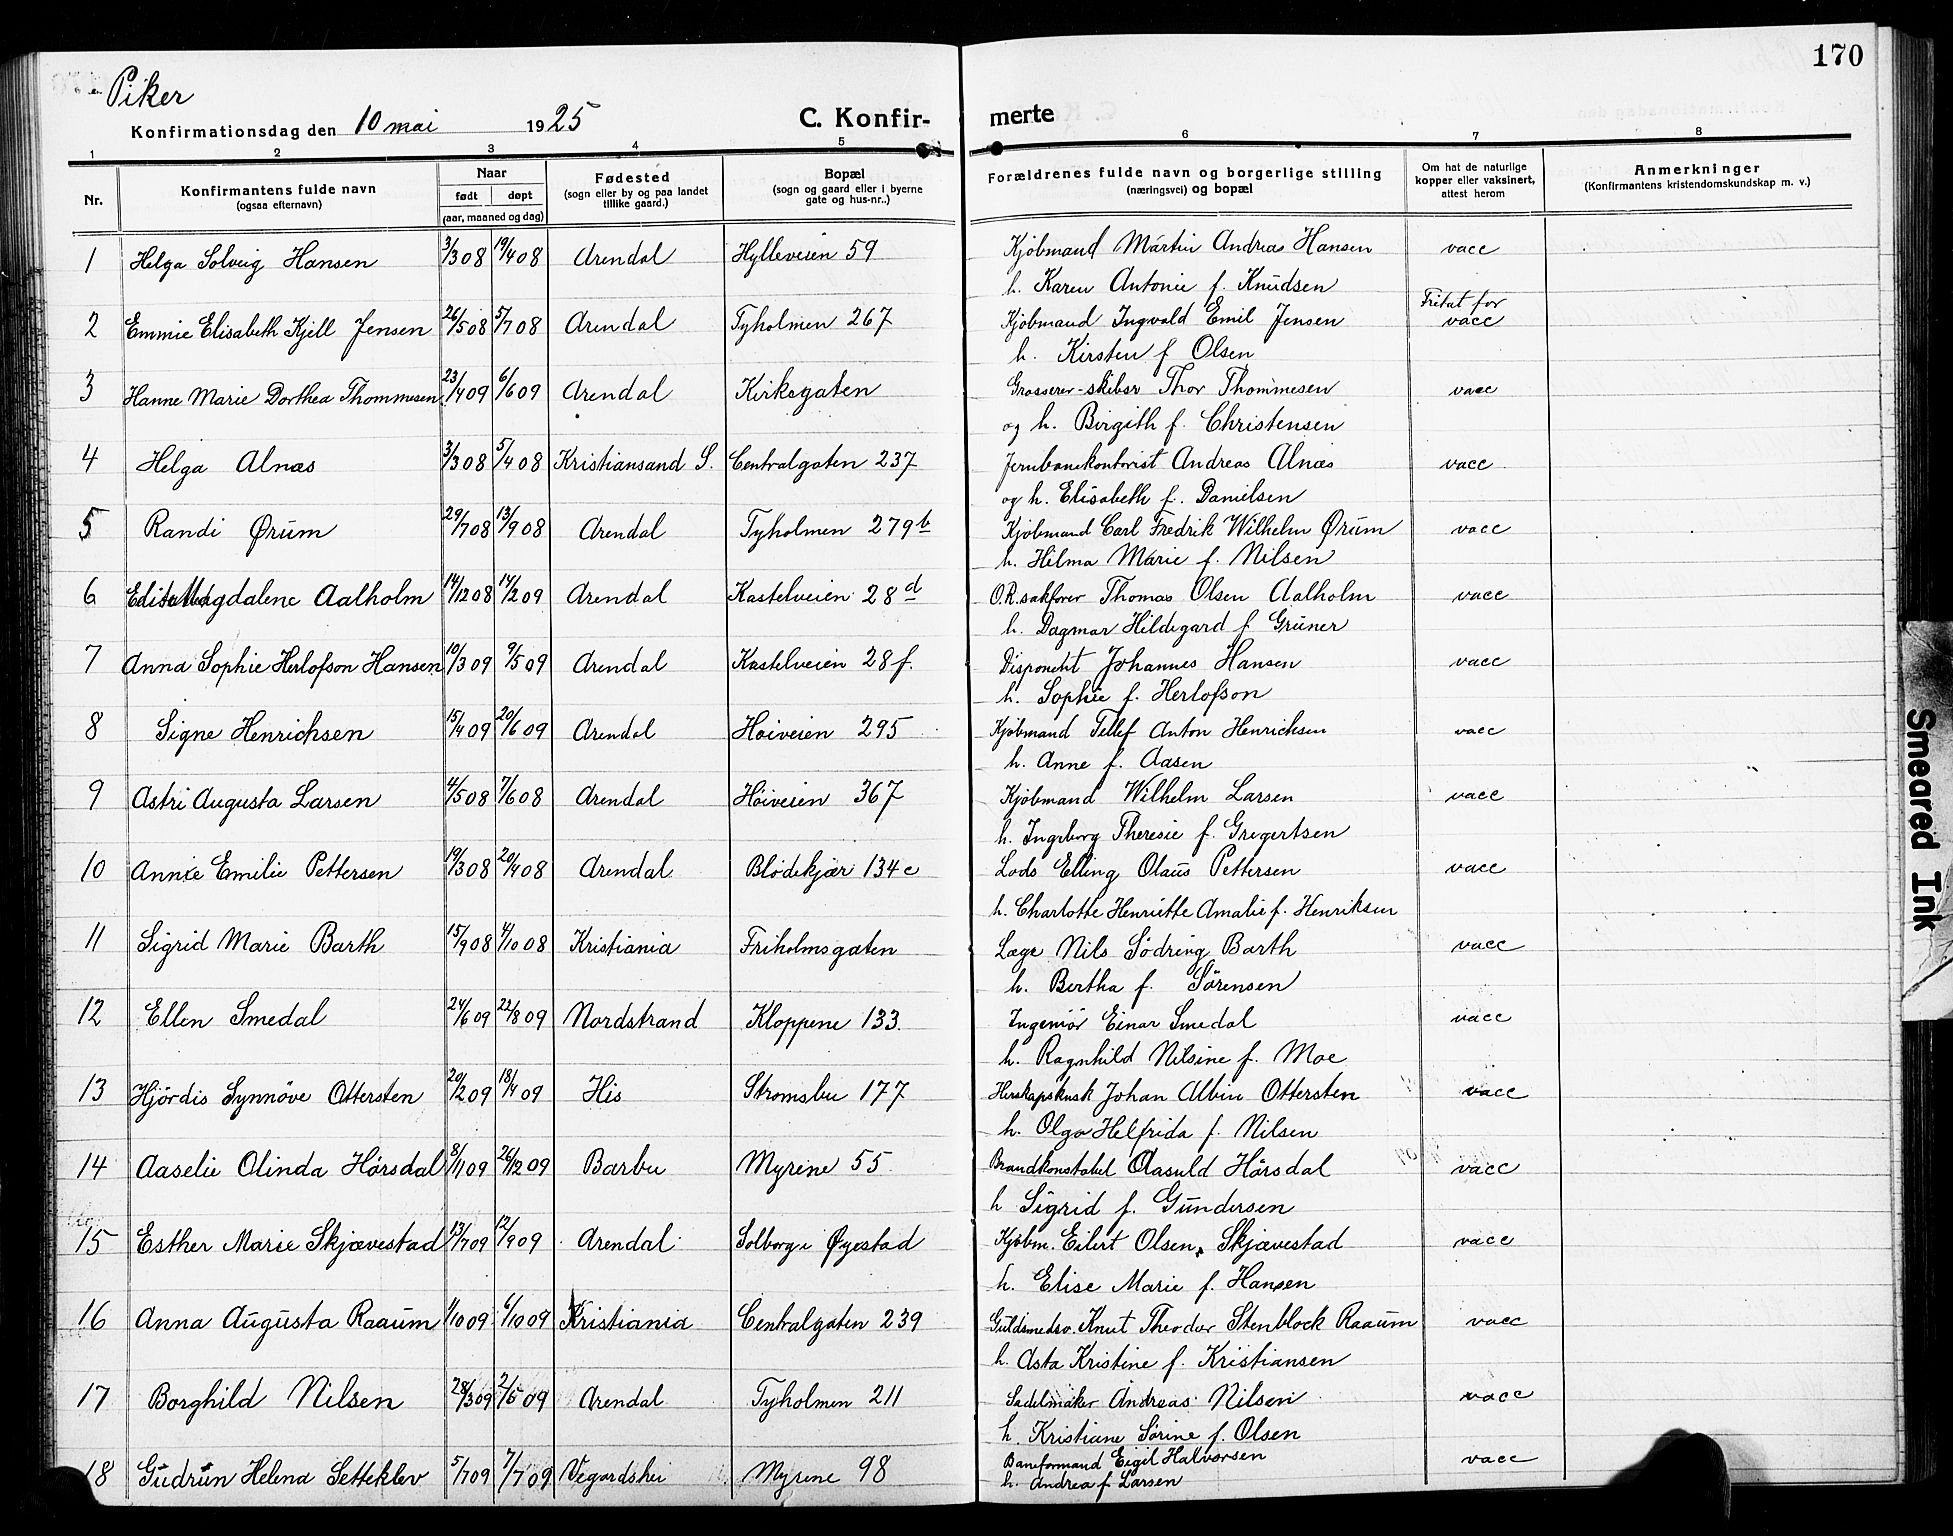 170
Piker
Konfirmationsdag den 10 mai 1925
C. Konfir- merte
1 2 3 4 5 6 7 8
Nr.
Konfirmantens fulde navn
(ogsaa efternavn)
Naar
født døpt
(aar, maaned og dag)
Fødested
(sogn eller by og paa landet
tillike gaard.)
Bopæl
(sogn og gaard eller i byerne
gate og hus-nr..)
Forældrenes fulde navn og borgerlige stilling
(næringsvei) og bopæl
Om hat de naturlige
kopper eller vaksinert,
attest herom
Anmerkninger
(Konfirmantens kristendomskundskap m. v.)
1 Helga Solveig Hansen 3/3 08 19/4 08 Arendal Hylleveien 59 Kjøbmand Martin Andreas Hansen vacc
h. Karen Antonie f. Knudsen
Fritat for
2 Emmie Elisabeth Kjell Jensen 26/5 08 5/7 08 Arendal Tyholmen 267 Kjøbmand Ingvald Emil Jensen vacc
h. Kirsten f Olsen
3 Hanne Marie Dorthea Thommesen 23/4 09 6/6 09 Arendal Kirkegaten Grosserer-skibsr Thor Thommesen vacc
og h. Birgith f. Christensen
4 Helga Alnæs 3/3 08 5/4 08 Kristiansand S. Centralgaten 237 Jernbanekontorist Andreas Alnæs vacc
og h. Elisabeth f. Danielsen
5 Randi Ørum 29/7 08 13/9 08 Arendal Tyholmen 279 b Kjøbmand Carl Fredrik Wilhelm Ørum vacc
h. Hilma Marie f. Nilsen
6 Edith Magdalene Aalholm 14/12 08 14/2 09 Arendal Kastelveien 28 d O.R.sakfører Thomas Olsen Aalholm vacc
h. Dagmar Hildegard f Grüner
7 Anna Sophie Herlofson Hansen 10/3 09 9/5 09 Arendal Kastelveien 28 f. Disponent Johannes Hansen vacc
h. Sophie f. Herlofson
8 Signe Henrichsen 15/4 09 20/6 09 Arendal Høiveien 295 Kjøbmand Tellef Anton Henrichsen vacc
h. Anne f. Aasen
9 Astri Augusta Larsen 4/5 08 7/6 08 Arendal Høiveien 367 Kjøbmand Wilhelm Larsen vacc
h. Ingeborg Theresie f. Gregertsen
10 Annie Emilie Pettersen 19/3 08 20/4 08 Arendal Blødekjær 134 c Lods Elling Olaus Pettersen vacc
h. Charlotte Henriette Amalie f. Henriksen
11 Sigrid Marie Barth 15/9 08 4/10 08 Kristiania Friholmsgaten Læge Nils Södring Barth vacc
h. Bertha f. Sørensen
12 Ellen Smedal 24/6 09 22/8 09 Nordstrand Kloppene 133. Ingeniør Einar Smedal vacc
h. Ragnhild Nilsine f. Moe
13 Hjördis Synnöve Ottersten 20/2 09 18/4 09 His Strømsbu 177 Herskapskusk Johan Albin Ottersten vacc
h. Olga Helfrida f. Nilsen
14 Aaselie Olinda Hörsdal 8/11 09 26/12 09 Barbu Myrene 55 Brandkonstabel Aasuld Hörsdal vacc
h Sigrid f. Gundersen
15 Esther Marie Skjævestad 13/7 09 12/9 09 Arendal Solborg i Øyestad Kjøbm. Eilert Olsen Skjævestad vacc
h. Elise Marie f. Hansen
16 Anna Augusta Raaum 1/10 09 6/10 09 Kristiania Centralgaten 239 Guldsmedsv. Knut Theodor Stenblock Raaum vacc
h. Asta Kristine f. Kristiansen
17 Borghild Nilsen 28/3 09 2/5 09 Arendal Tyholmen 211 Sadelmaker Andreas Nilsen vacc
h. Kristiane Sörine f. Olsen
18 Gudrun Helena Setteklev 5/7 09 7/7 09 Vegardshei Myrene 98 Baneformand Eigil Halvorsen vacc
h. Andrea f Larsen
Smeared Ink